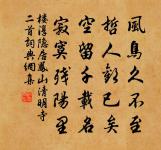 鳳鳥久不至
哲人已矣
空留千載名
寂寞殘陽里
樓隱居鳳山清明寺
二首詞典網集